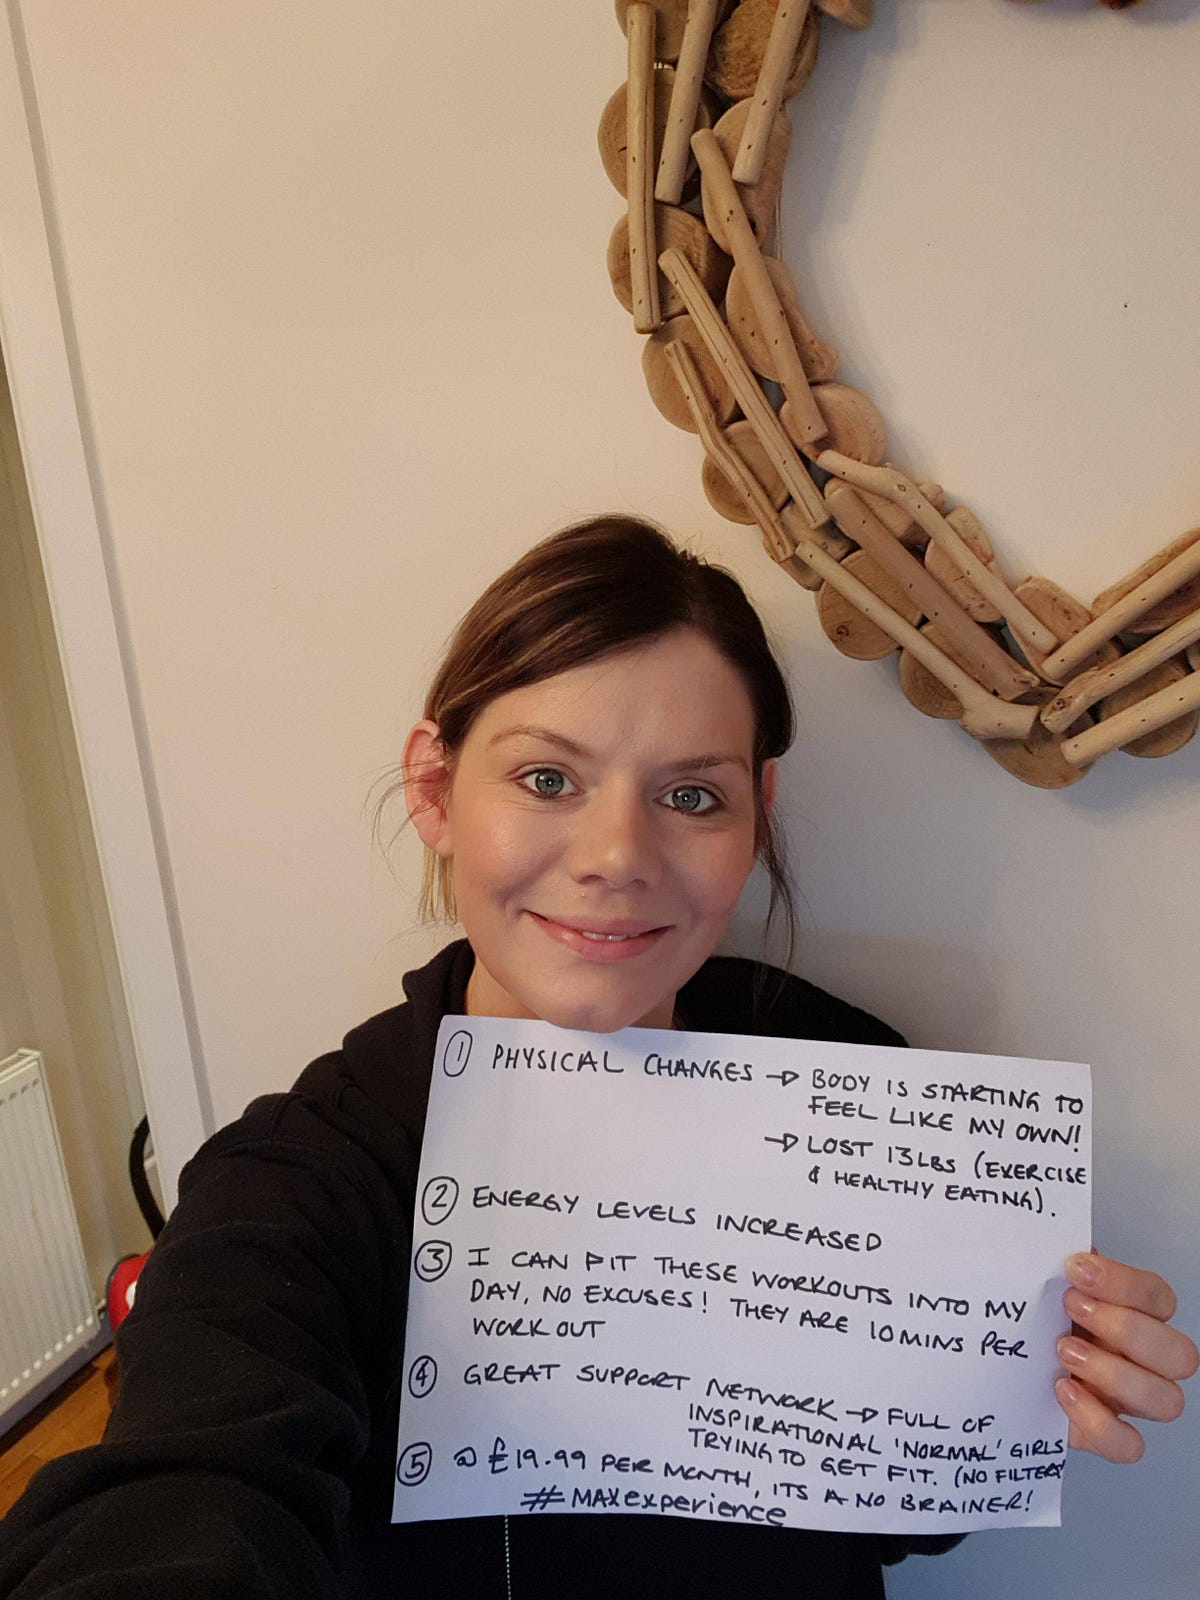 ① PHYSICAL CHANGES → BODY IS STARTING TO
FEEL LIKE MY OWN!
→ LOST 13LBS (EXERCISE
& HEALTHY EATING).
② ENERGY LEVELS INCREASED
③ I CAN FIT THESE WORKOUTS INTO MY
DAY, NO EXCUSES! THEY ARE 10MINS PER
WORKOUT
④ GREAT SUPPORT NETWORK → FULL OF
INSPIRATIONAL 'NORMAL' GIRLS
TRYING TO GET FIT. (NO FILTERS)
⑤ @ £19.99 PER MONTH, ITS A NO BRAINER!
#MAXexperience